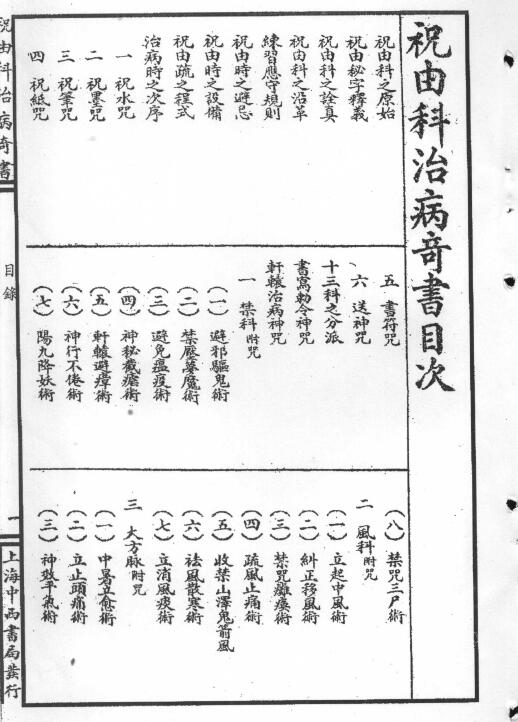 祝由科治病奇書目次
祝由科之原始
祝由秘字釋義
祝由科之詮真
祝由科之沿革
練習應守規則
祝由時之避忌
祝由時之設備
祝由疏之程式
治病時之次序
一 祝水咒
二 祝墨咒
三 祝筆咒
四 祝紙咒
五 書符咒
六 送神咒
十三科之分派
書寫勅令神咒
軒轅治病神咒
一 禁科附咒
(一) 避邪驅鬼術
(二) 禁壓夢魔術
(三) 避免瘟疫術
(四) 神秘截瘧術
(五) 軒轅避瘴術
(六) 神行不倦術
(七) 陽九降妖術
(八) 禁咒三尸術
二 風科附咒
(一) 立起中風術
(二) 糾正移風術
(三) 禁咒癱瘓術
(四) 疏風止痛術
(五) 收禁山澤鬼箭風
(六) 祛風散寒術
(七) 立消風痰術
三 大方脉附咒
(一) 中暑立愈術
(二) 立止頭痛術
(三) 神效平氣術
祝由科治病奇書
目錄
一
上海中西書局發行